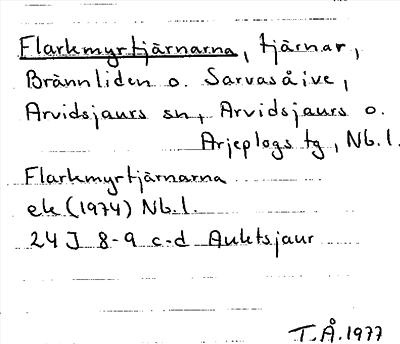 Flarkmyrtjärnarna, tjärnar,
Brännliden o. Sarvasåive,
Arvidsjaurs sn, Arvidsjaurs o.
Arjeplogs tg, Nb.l.
Flarkmyrtjärnarna
ek (1974) Nb.l.
24 J 8-9 c-d Auktsjaur
T.Å. 1977